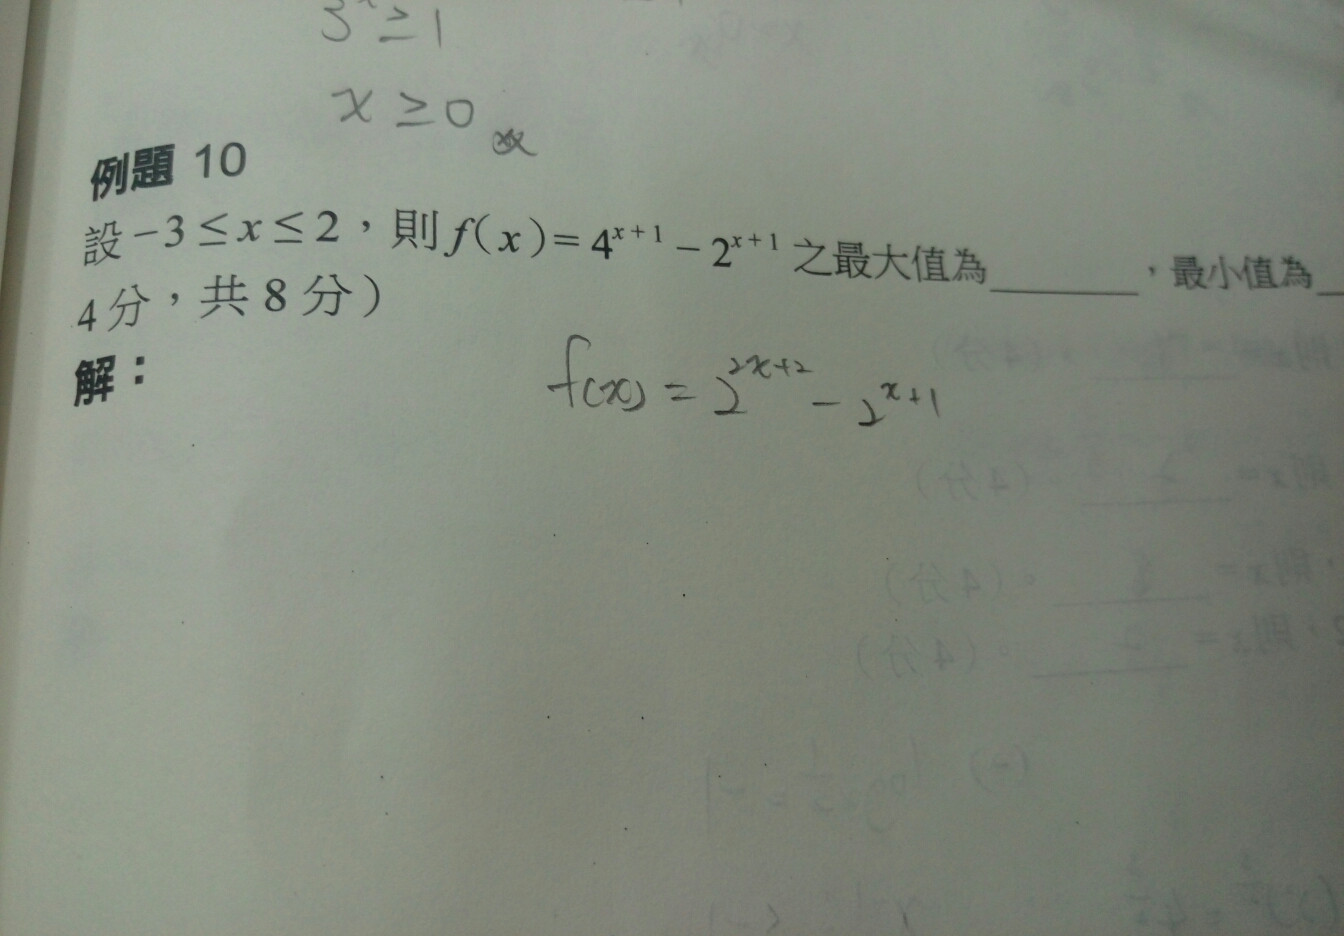 3ˣ ≥ 1
x ≥ 0
例題 10
設 −3 ≤ x ≤ 2，則 f(x) = 4ˣ⁺¹ − 2ˣ⁺¹ 之最大值為______，最小值為
4分，共8分）
解：
f(x) = 2²ˣ⁺² − 2ˣ⁺¹